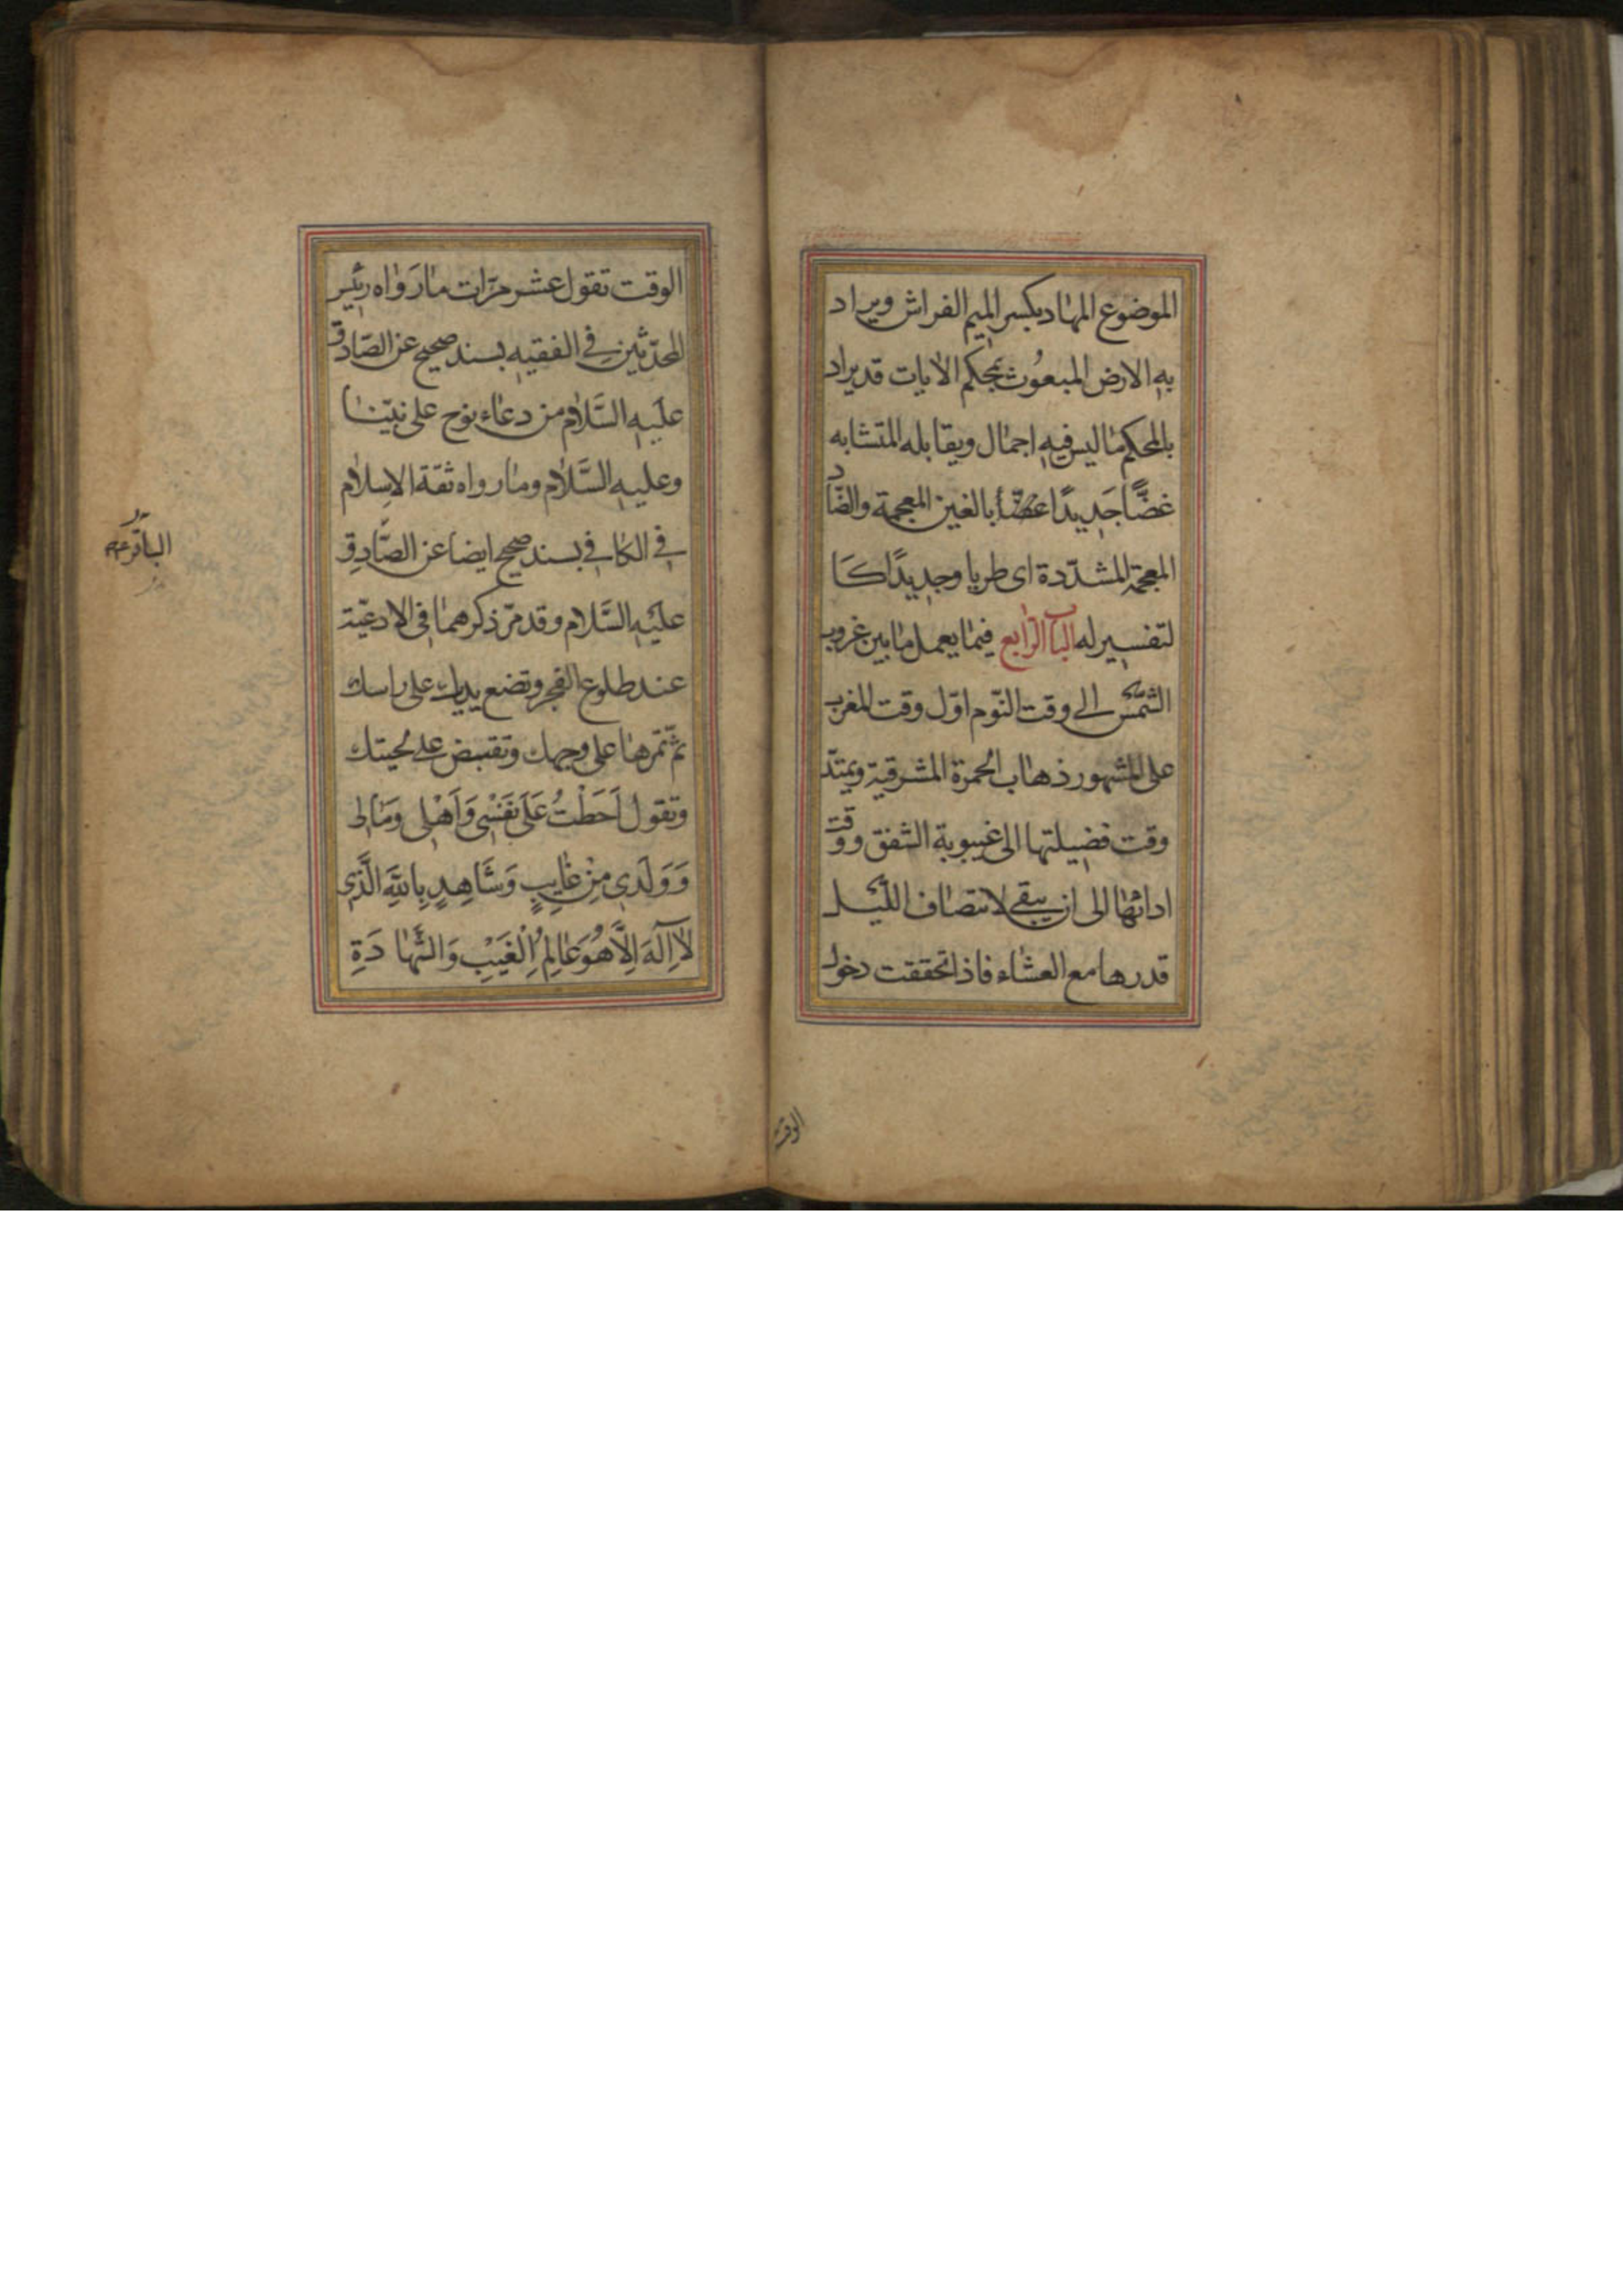 الموضوع المهاد بكسر الميم الفراش ويراد
به الارض المبعوث بمحكم الايات قد يراد
بالمحكم ما ليس فيه اجمال ويقابله المتشابه
غضًّا جَديدًا غضّاً بالغين المعجمة والضاد
المعجمة المشدّدة اى طريا وجديدًا كَا
لتفسير له الباب الرّابع فيما يعمل ما بين غروب
الشّمس الى وقت النّوم اوّل وقت المغرب
على المشهور ذهاب الحمرة المشرقية ويمتدّ
وقت فضيلتها الى غيبوبة الشفق ووقت
ادائها الى ان يبقى لانتصاف اللّيل
قدرها مع العشاء فاذا تحققت دخول
الوقت
الوقت تقول عشر مرّات ما رَواه رئيس
المحدّثين في الفقيه بسند صحيح عن الصّادق
عليه السَّلام من دعاء نوح على نبيّنا
وعليه السَّلام وما رواه ثقة الاسلام
في الكافي بسند صحيح ايضا عن الصّادق
عليه السَّلام وقد مرّ ذكرهما في الادعيّة
عند طلوع الفجر وتضع يدك على راسك
ثمّ تمرّها على وجهك وتقبض على لحيتك
وتقول اَحَطْتُ عَلَى نَفْسِى وَاَهْلِى وَمَالِى
وَوَلَدِى مِنْ غَايِبٍ وَشَاهِدٍ بِاللهِ الَّذِى
لاَ اِلَهَ اِلَّا هُوَ عَالِمُ الْغَيْبِ وَالشَّهَادَةِ
الباقر